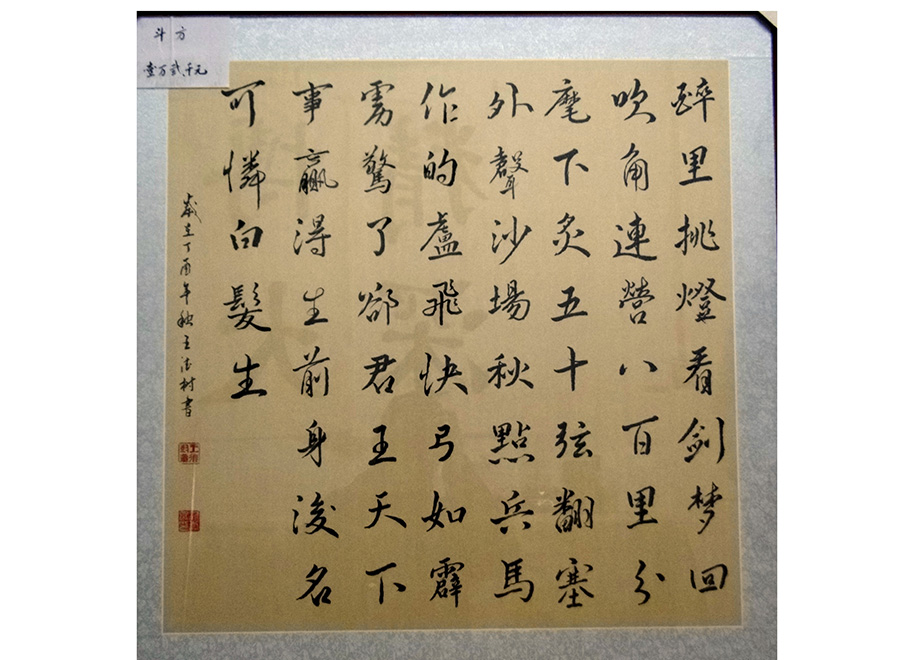 斗方
壹万贰千元
醉里挑燈看剑梦回
吹角連營八百里分
麾下炙五十弦翻塞
外聲沙場秋點兵馬
作的盧飛快弓如霹
雳驚了卻君王天下
事贏得生前身後名
可憐白髮生
歲在丁酉年秋王村書